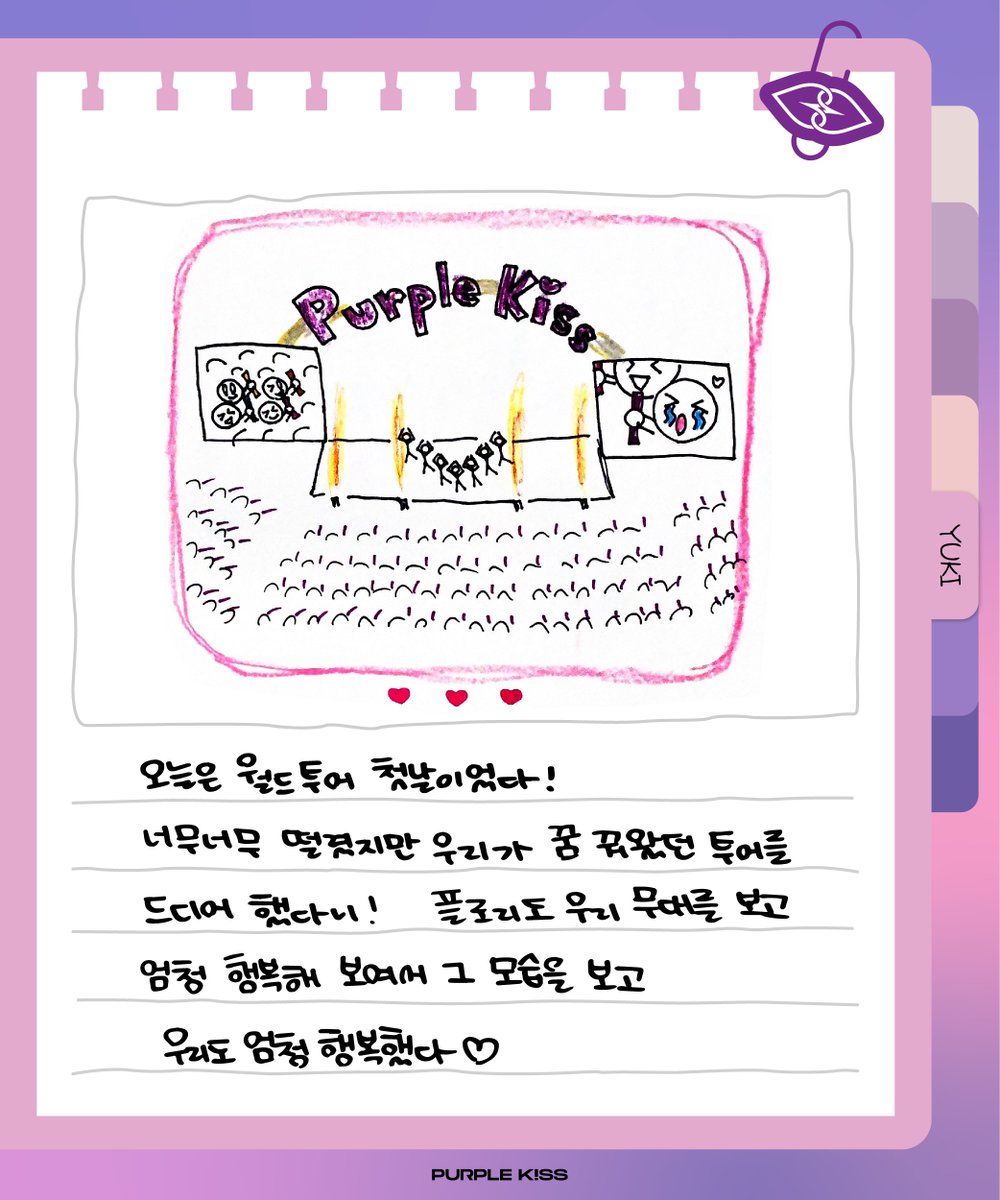 Purple Kiss
YUKI
오늘은 월드투어 첫날이었다!
너무너무 떨렸지만 우리가 꿈 꿔왔던 투어를
드디어 했다니! 플로리도 우리 무대를 보고
엄청 행복해 보여서 그 모습을 보고
우리도 엄청 행복했다♡
PURPLE K!SS